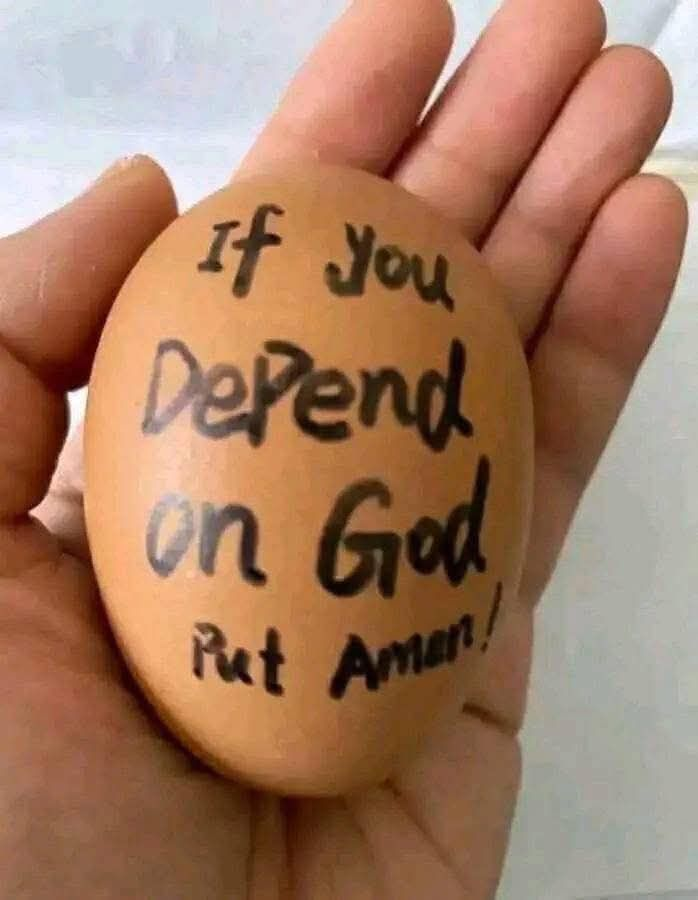 If you
Depend
on God
Put Amen!